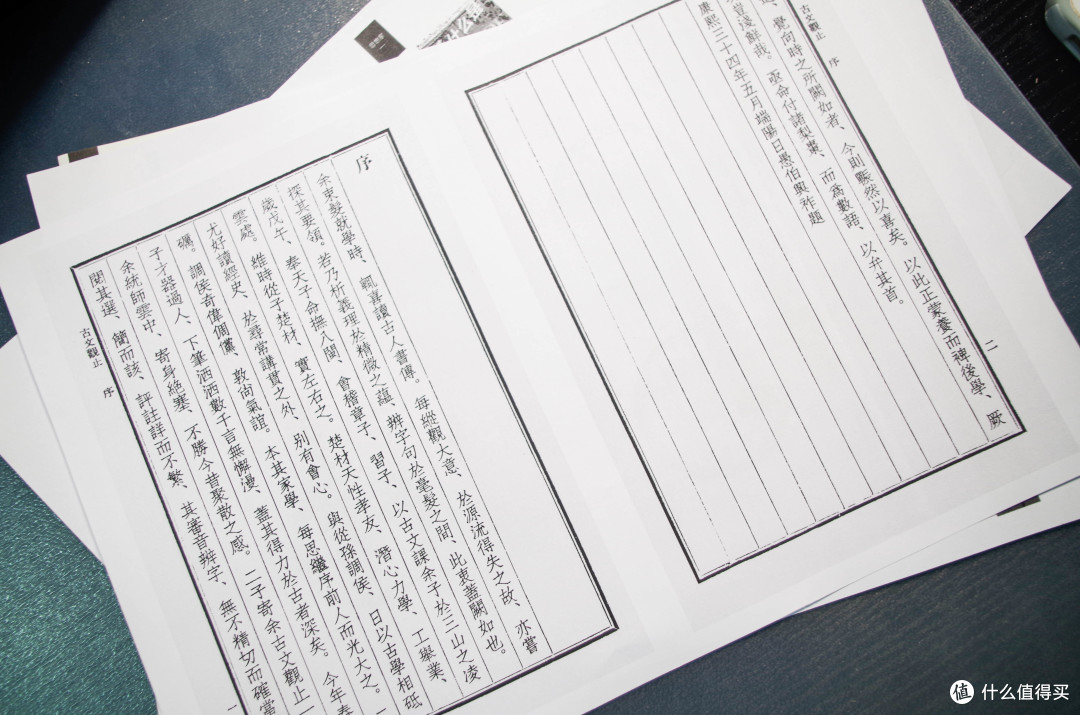 古文觀止 序 二
覺向時之所闕如者、今則然以喜矣。以此正蒙養而裨後學、厥
豈淺鮮哉。亟命付諸梨棗、而為數語、以弁其首。
康熙三十四年五月端陽日愚伯興祚題
序
余束髮就學時、輒喜讀古人書傳。每縱觀大意、於源流得失之故、亦嘗
探其要領。若乃析義理於精微之蘊、辨字句於毫髮之間、此衷蓋闕如也。
歲戊午、奉天子命撫八閩、會稽章子、習子、以古文課余子於三山之凌
雲處。維時從子楚材、實左右之。楚材天性孝友、潛心力學、工舉業、
尤好讀經史、於尋常講貫之外、別有會心。與從孫調侯、日以古學相砥
礪。調侯奇偉倜儻、敦尚氣誼。本其家學、每思繼序前人而光大之。
子才器過人、下筆洒洒數千言無懈漫、蓋其得力於古者深矣。今年春
余統師雲中、寄身絕塞、不勝今昔聚散之感。二子寄余古文觀止一
閱其選、簡而該、評註詳而不繁、其審音辨字、無不精切而確當
古文觀止 序 一
值 什么值得买